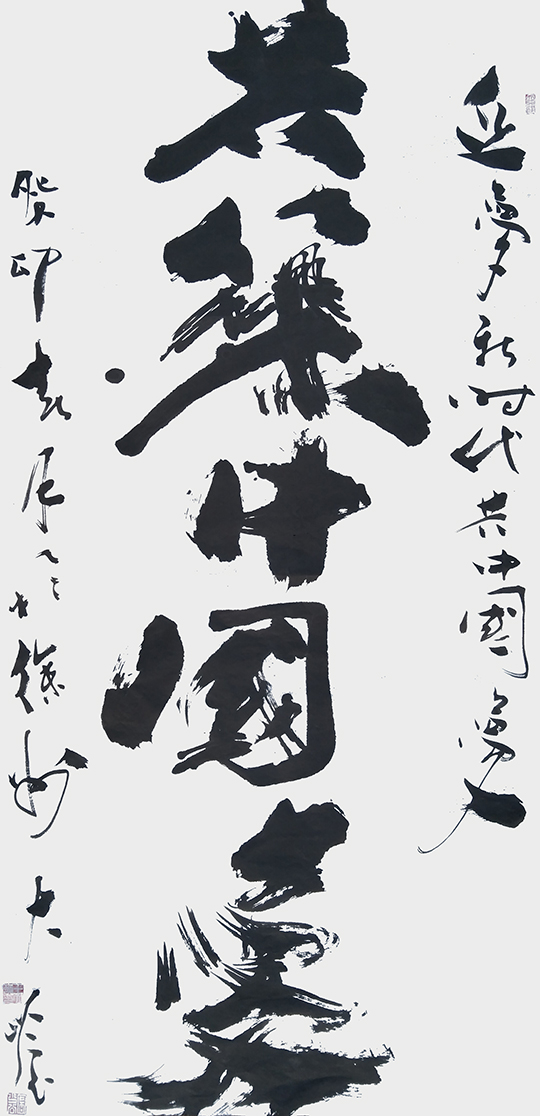 夢新时代共中國夢
共築中國夢
癸卯春月於徐州大